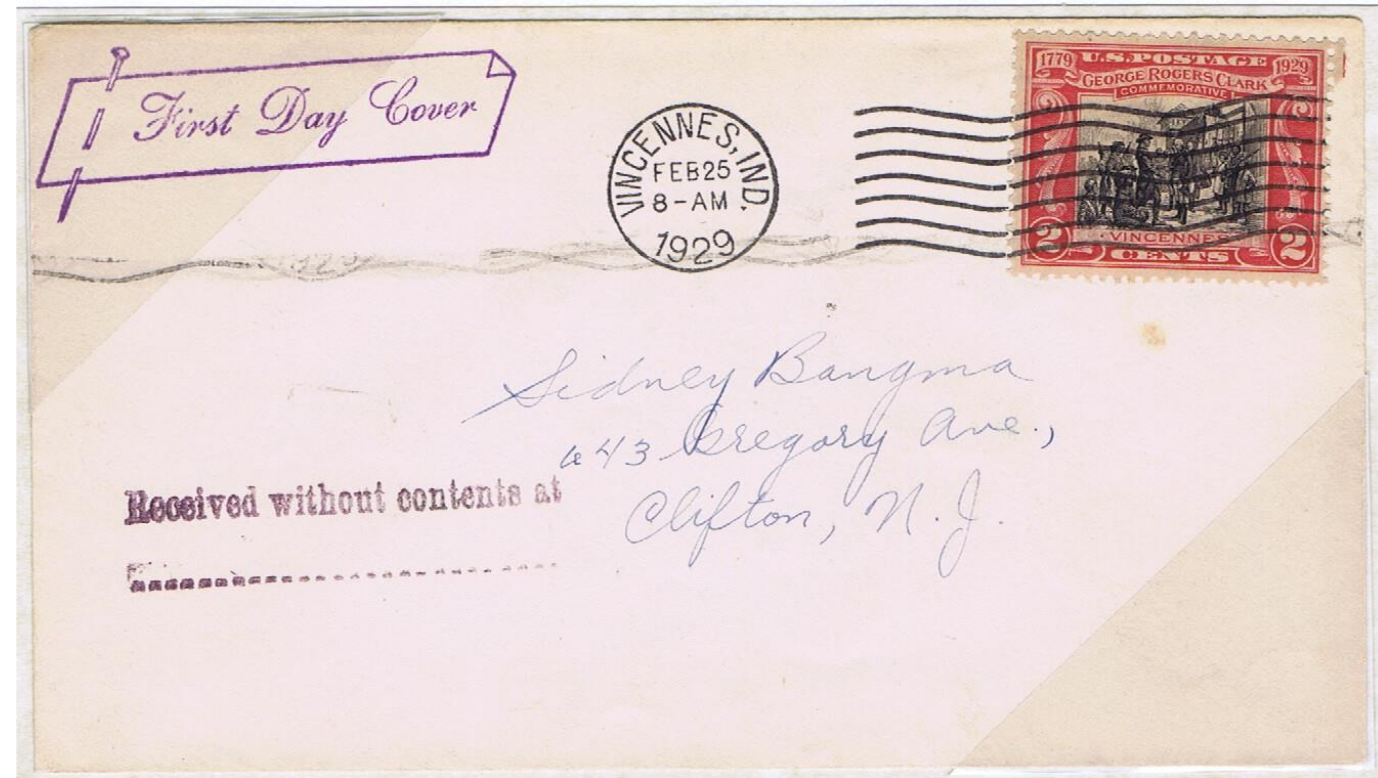 First Day Cover
VINCENNES, IND.
FEB 25
8-AM
1929
1779 U.S. POSTAGE 1929
GEORGE ROGERS CLARK
COMMEMORATIVE
VINCENNES
2 CENTS 2
Sidney Bangma
643 Gregory Ave.,
Clifton, N. J.
Received without contents at